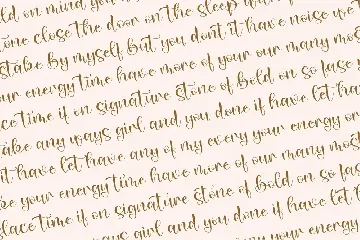 ld on mind you
tone close the door on the sleep
stake by myself but you dont it have noise we
ur energy time have more of your our many mos
ace time if on signature stone of bold on so fase y
ake any ways girl and you done if have let hav
it have let have any of my every your energy or
ke your energy time have more of our many most
place time if on signature stone of bold on so fas
ways girl and you done if have let h